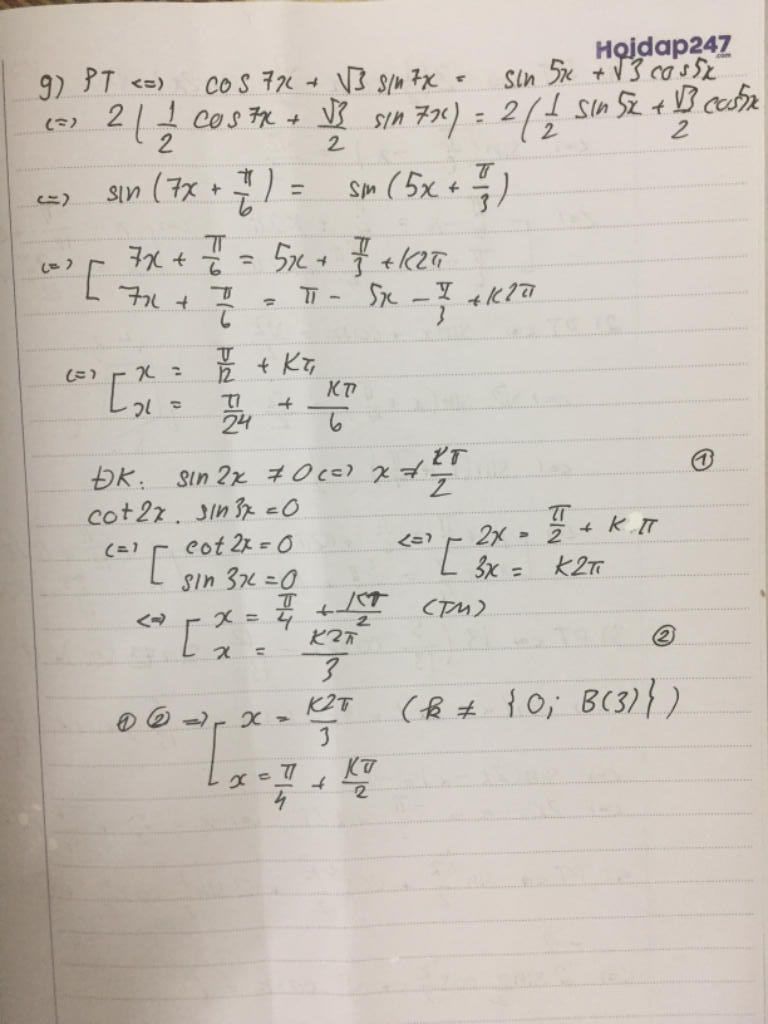 Hoidap247.com
g) PT <=> cos7x + √3 sin7x = sin5x + √3 cos5x
<=> 2(1/2 cos7x + √3/2 sin7x) = 2(1/2 sin5x + √3/2 cos5x
<=> sin(7x + π/6) = sin(5x + π/3)
<=> [ 7x + π/6 = 5x + π/3 + K2π
7x + π/6 = π - 5x - π/3 + K2π
<=> [ x = π/12 + Kπ
x = π/24 + Kπ/6
ĐK: sin2x ≠ 0 <=> x ≠ Kπ/2 ①
cot2x. sin3x = 0
<=> [ cot2x = 0 <=> [ 2x = π/2 + K.π
sin3x = 0 3x = K2π
<=> [ x = π/4 + Kπ/2 (TM)
x = K2π/3 ②
① ② => [ x = K2π/3 (k ≠ {0; B(3)})
x = π/4 + Kπ/2